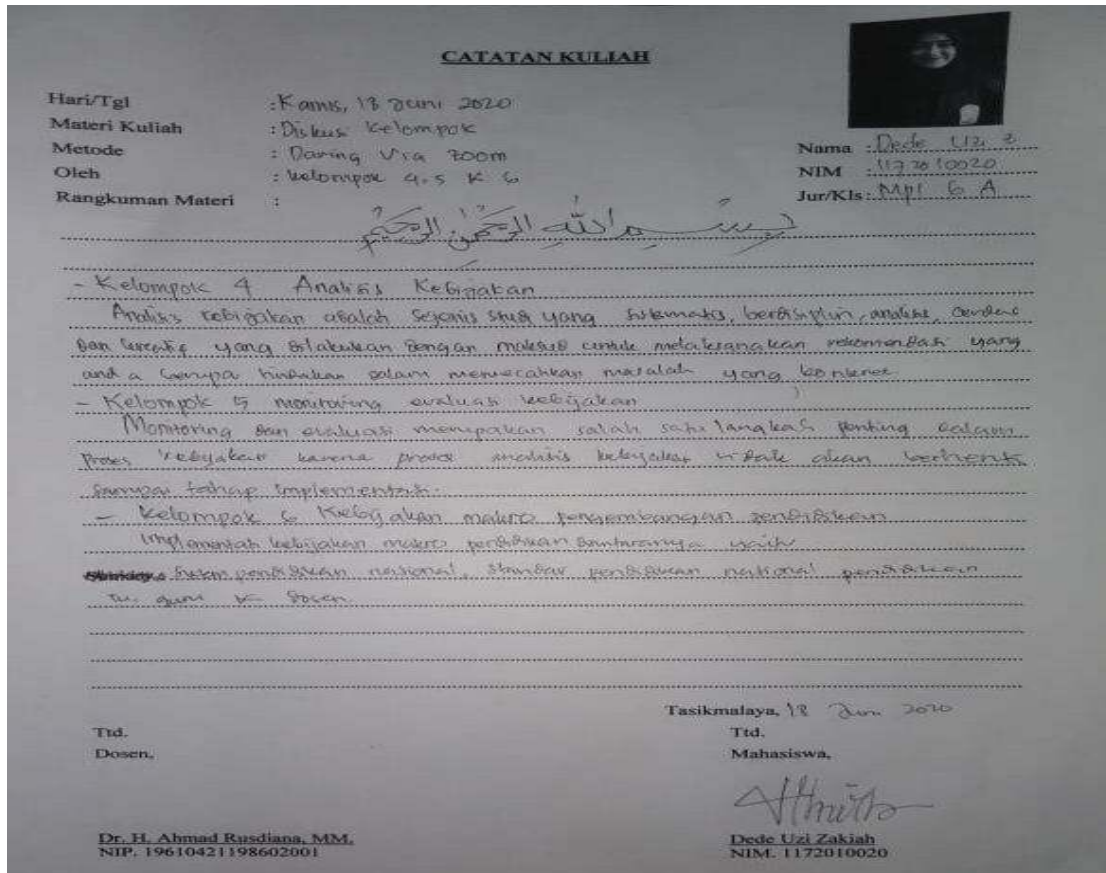 CATATAN KULIAH
Hari/Tgl : Kamis, 18 Juni 2020
Materi Kuliah : Diskusi Kelompok
Metode : Daring Via Zoom
Oleh : Kelompok 4.5 & 6
Rangkuman Materi :
Nama : Dede Uzi Z
NIM : 1172010020
Jur/Kls : MPI 6 A
بِسْــمِ اللّٰهِ الرَّحْمٰنِ الرَّحِيْمِ
- Kelompok 4 Analisis Kebijakan
Analisis kebijakan adalah sejenis studi yang sistematis, berdisiplin, analitis, cerdas
dan kreatif yang dilakukan dengan maksud untuk melaksanakan rekomendasi yang
berupa tindakan dalam memecahkan masalah yang konkret.
- Kelompok 5 monitoring evaluasi kebijakan
Monitoring dan evaluasi merupakan salah satu langkah penting dalam
proses kebijakan karena proses analisis kebijakan tidak akan berhenti
sampai tahap implementasi.
- Kelompok 6 Kebijakan makro pengembangan pendidikan
Implementasi kebijakan makro pendidikan diantaranya yaitu
pendidikan nasional, standar pendidikan nasional pendidikan
guru & dosen.
Tasikmalaya, 18 Juni 2020
Ttd.
Dosen,
Dr. H. Ahmad Rusdiana, MM.
NIP. 19610421198602001
Ttd.
Mahasiswa,
Dede Uzi Zakiah
NIM. 1172010020